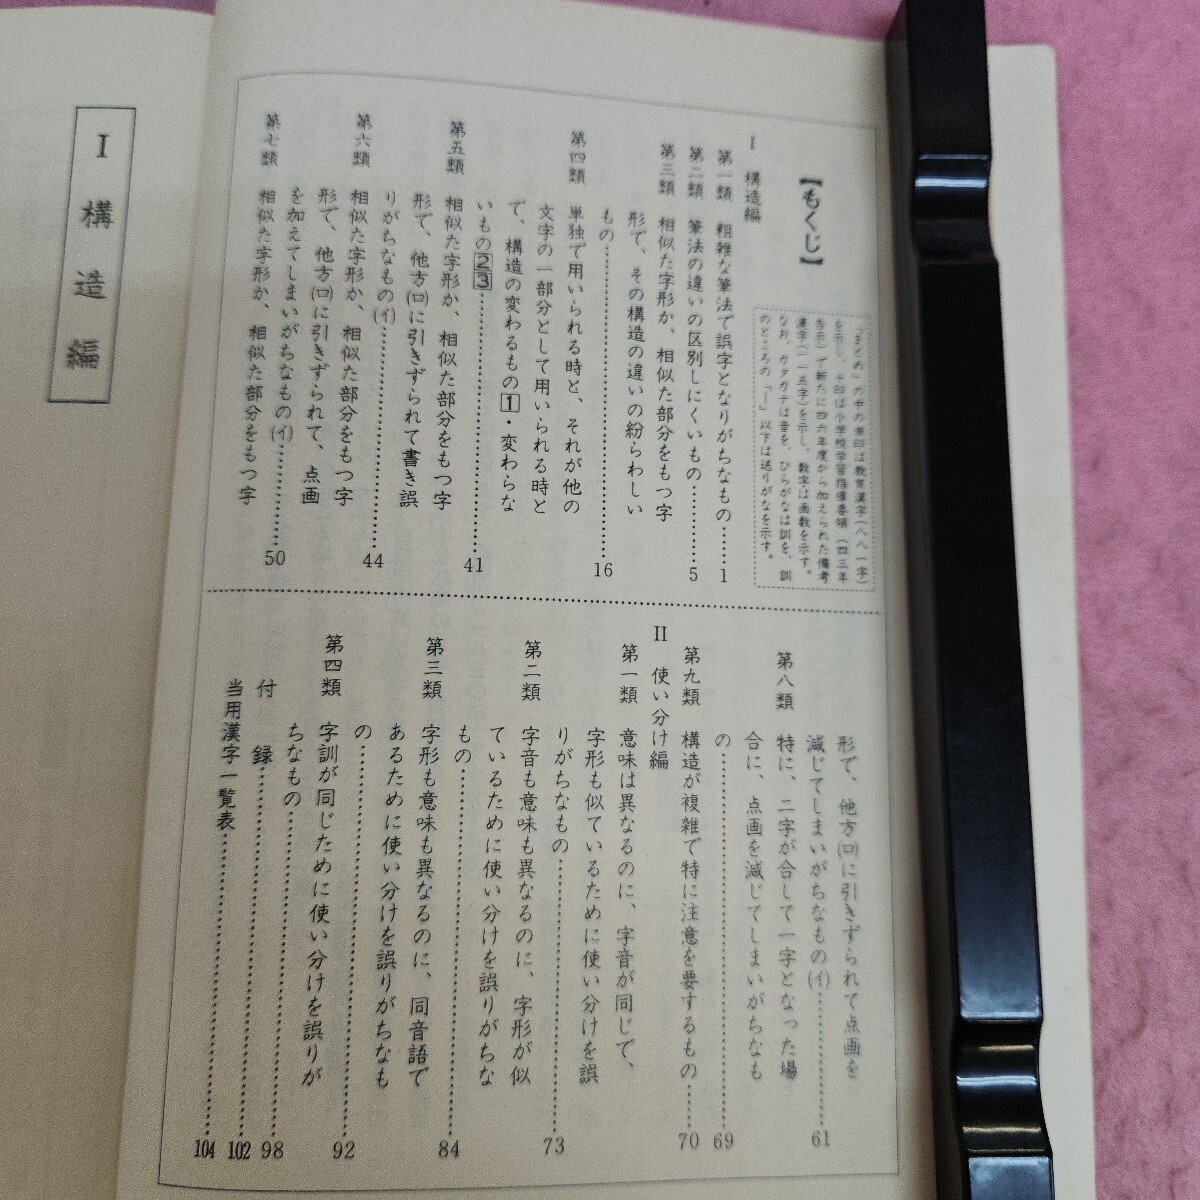 【もくじ】
「まとめ」の中の※印は教育漢字(八八一字)
を示し、+印は小学校学習指導要領(四三年
告示)で新たに四六年度から加えられた備考
漢字(一一五字)を示し、数字は画数を示す。
なお、カタカナは音を、ひらがなは訓を、訓
のところの「―」以下は送りがなを示す。
I 構造編
第一類 粗雑な筆法で誤字となりがちなもの……1
第二類 筆法の違いの区別しにくいもの……5
第三類 相似た字形か、相似た部分をもつ字
形で、その構造の違いの紛らわしい
もの……16
第四類 単独で用いられる時と、それが他の
文字の一部分として用いられる時と
で、構造の変わるもの1・変わらな
いもの23……41
第五類 相似た字形か、相似た部分をもつ字
形で、他方(ロ)に引きずられて書き誤
りがちなもの(イ)……44
第六類 相似た字形か、相似た部分をもつ字
形で、他方(ロ)に引きずられて、点画
を加えてしまいがちなもの(イ)……50
第七類 相似た字形か、相似た部分をもつ字
形で、他方(ロ)に引きずられて点画を
減じてしまいがちなもの(イ)……61
第八類 特に、二字が合して一字となった場
合に、点画を減じてしまいがちなも
の……69
第九類 構造が複雑で特に注意を要するもの……70
II 使い分け編
第一類 意味は異なるのに、字音が同じで、
字形も似ているために使い分けを誤
りがちなもの……73
第二類 字音も意味も異なるのに、字形が似
ているために使い分けを誤りがちな
もの……84
第三類 字形も意味も異なるのに、同音語で
あるために使い分けを誤りがちなも
の……92
第四類 字訓が同じために使い分けを誤りが
ちなもの……98
付録……102
当用漢字一覧表……104
I 構造編